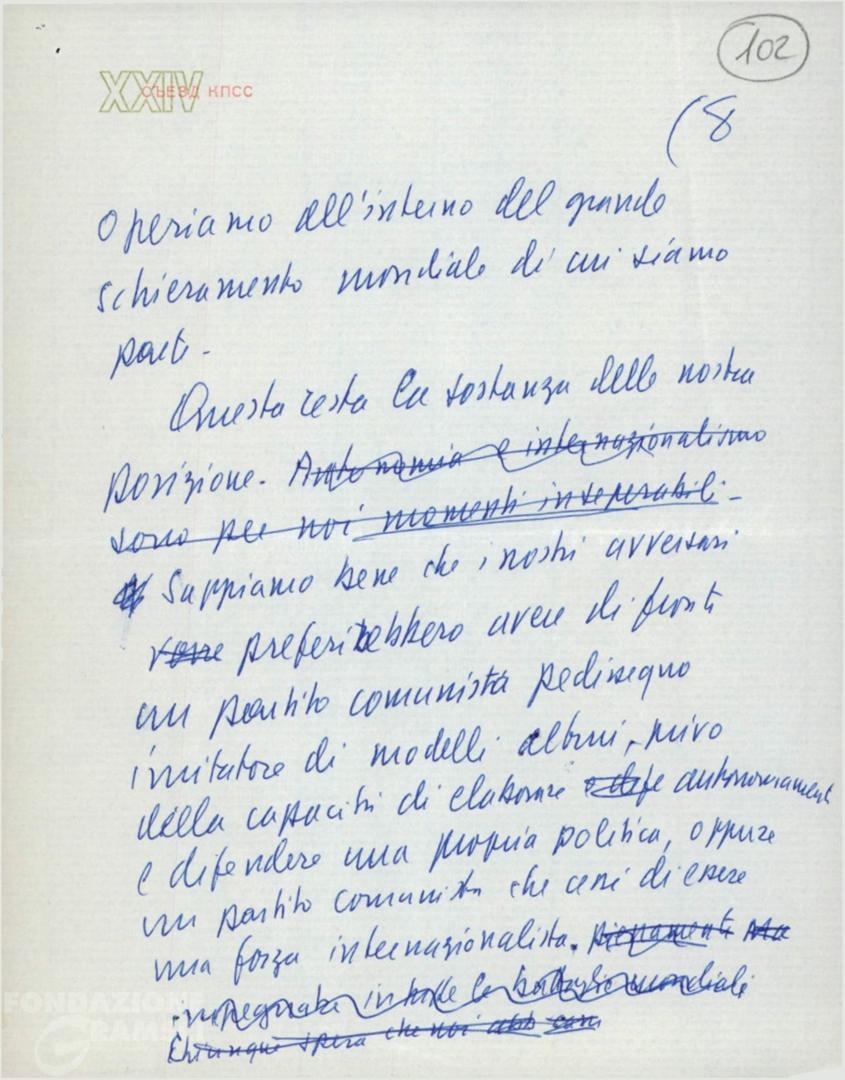 102
XXIV СЪЕЗД КПСС
(8
Operiamo all'interno del grande
schieramento mondiale di cui siamo
parte.
Questa resta la sostanza della nostra
posizione. Autonomia e internazionalismo
sono per noi momenti inseparabili.
Sappiamo bene che i nostri avversari
preferirebbero avere di fronte
un partito comunista pedissequo
imitatore di modelli altrui, privo
della capacità di elaborare autonomamente
e difendere una propria politica, oppure
un partito comunista che cessi di essere
una forza internazionalista. pienamente
impegnata in tutte le battaglie mondiali
Chiunque spera che noi
FONDAZIONE
GRAMSCI